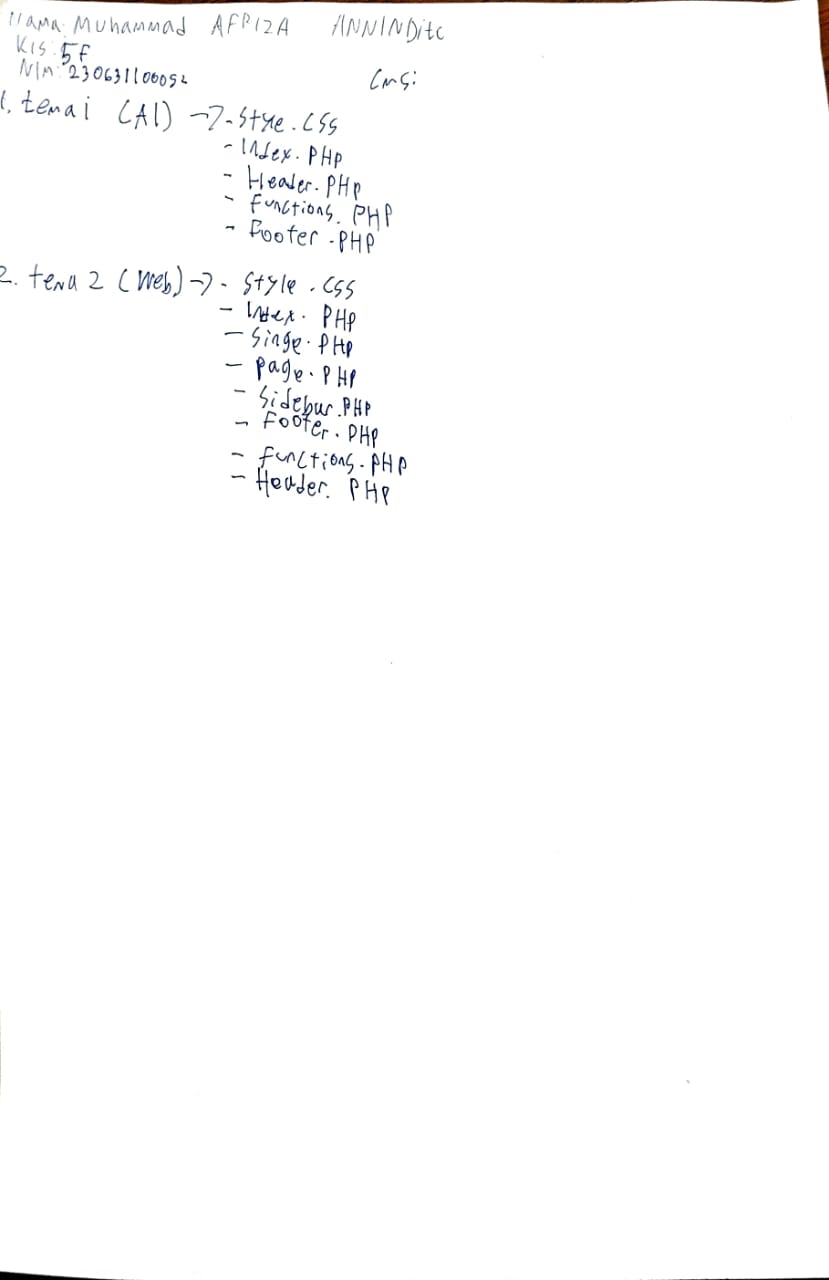 Nama: Muhammad AFRIZA ANNINDitc
Kls: 5F
NIM: 230631100052
CMS:
1. tema i (AI) → - Stye.CSS
- Index.PHP
- Header.PHP
- Functions.PHP
- Footer.PHP
2. tema 2 (Web) → - Style.CSS
- Index.PHP
- Singe.PHP
- Page.PHP
- Sidebar.PHP
- Footer.PHP
- Functions.PHP
- Header.PHP